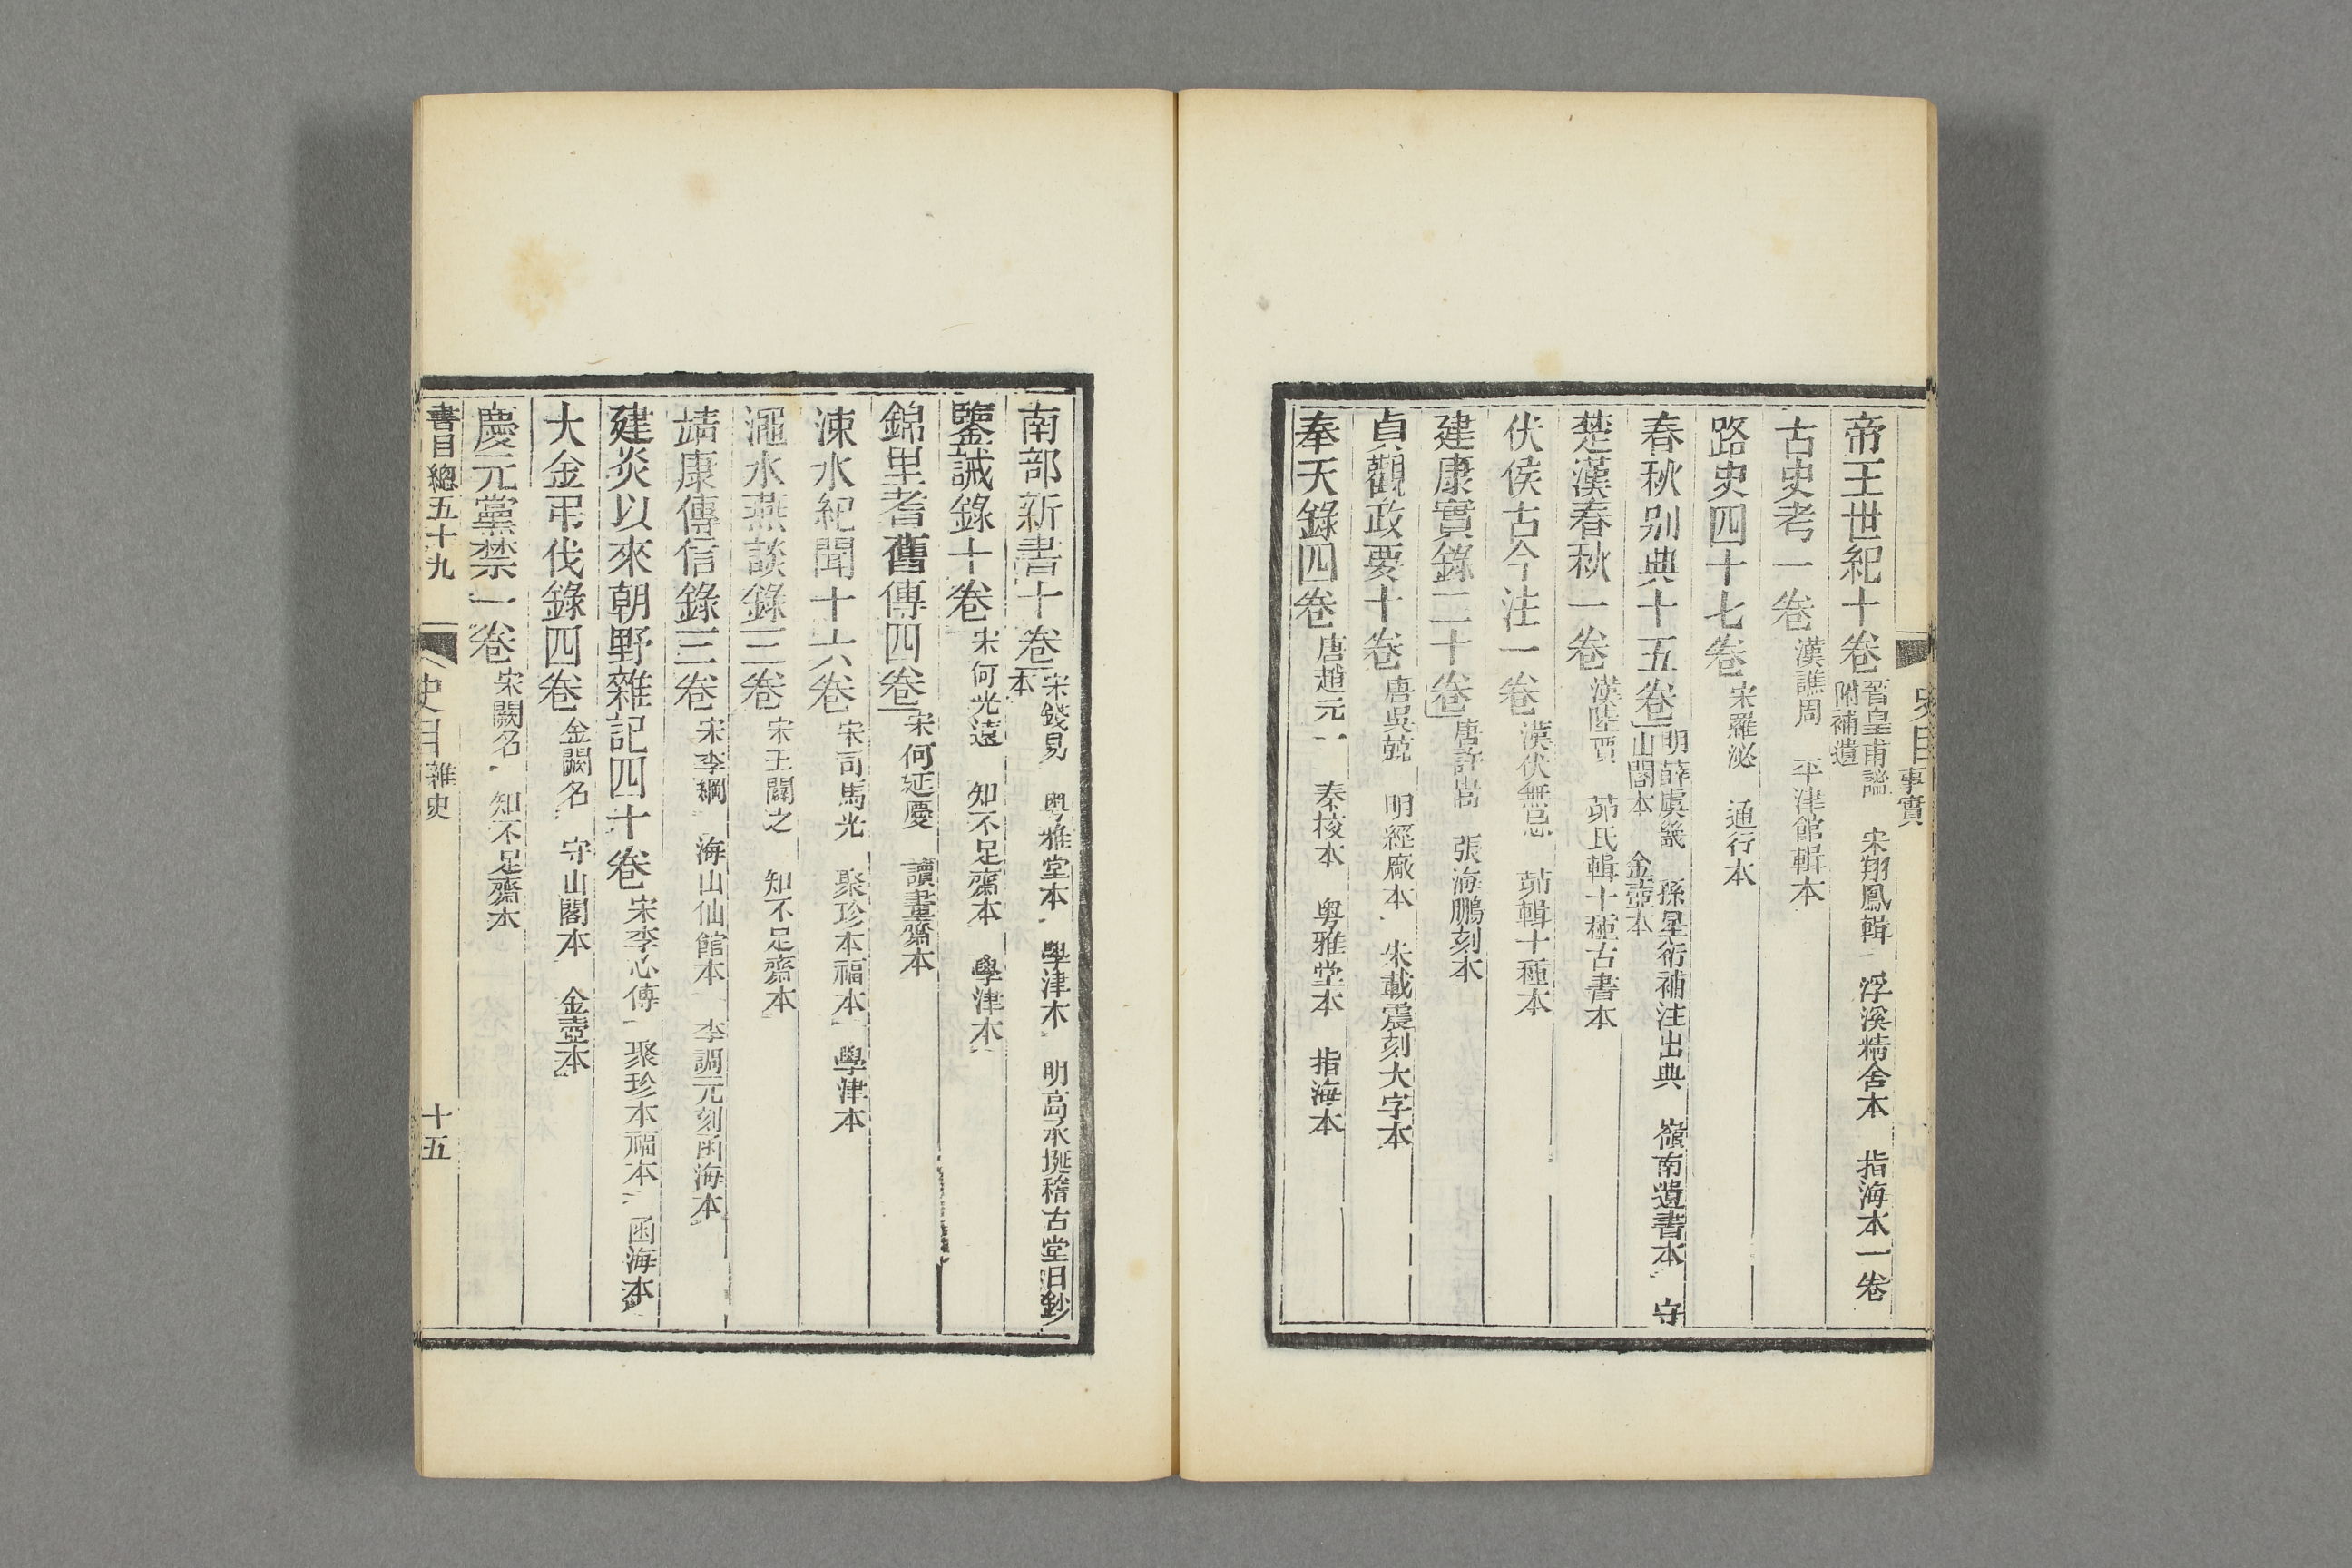 史目 事實
帝王世紀十卷 晉皇甫謐 宋翔鳳輯 浮溪精舍本 指海本一卷
附補遺
古史考一卷 漢譙周 平津館輯本
路史四十七卷 宋羅泌 通行本
春秋别典十五卷 明薛虞畿 孫星衍補注出典 嶺南遺書本 守
山閣本 金壺本
楚漢春秋一卷 漢陸賈 茆氏輯十種古書本
伏侯古今注一卷 漢伏無忌 茆輯十種本
建康實錄二十卷 唐許嵩 張海鵬刻本
貞觀政要十卷 唐吳兢 明經廠本 朱載震刻大字本
奉天錄四卷 唐趙元一 秦校本 粤雅堂本 指海本
南部新書十卷 宋錢易 粤雅堂本 學津本 明高承埏稽古堂日鈔
本
鑒誡錄十卷 宋何光遠 知不足齋本 學津本
錦里耆舊傳四卷 宋何延慶 讀書齋本
涑水紀聞十六卷 宋司馬光 聚珍本福本 學津本
澠水燕談錄三卷 宋王闢之 知不足齋本
靖康傳信錄三卷 宋李綱 海山仙館本 李調元刻函海本
建炎以來朝野雜記四十卷 宋李心傳 聚珍本福本 函海本
大金弔伐錄四卷 金闕名 守山閣本 金壺本
慶元黨禁一卷 宋闕名 知不足齋本
書目總五十九 史目 雜史 十五